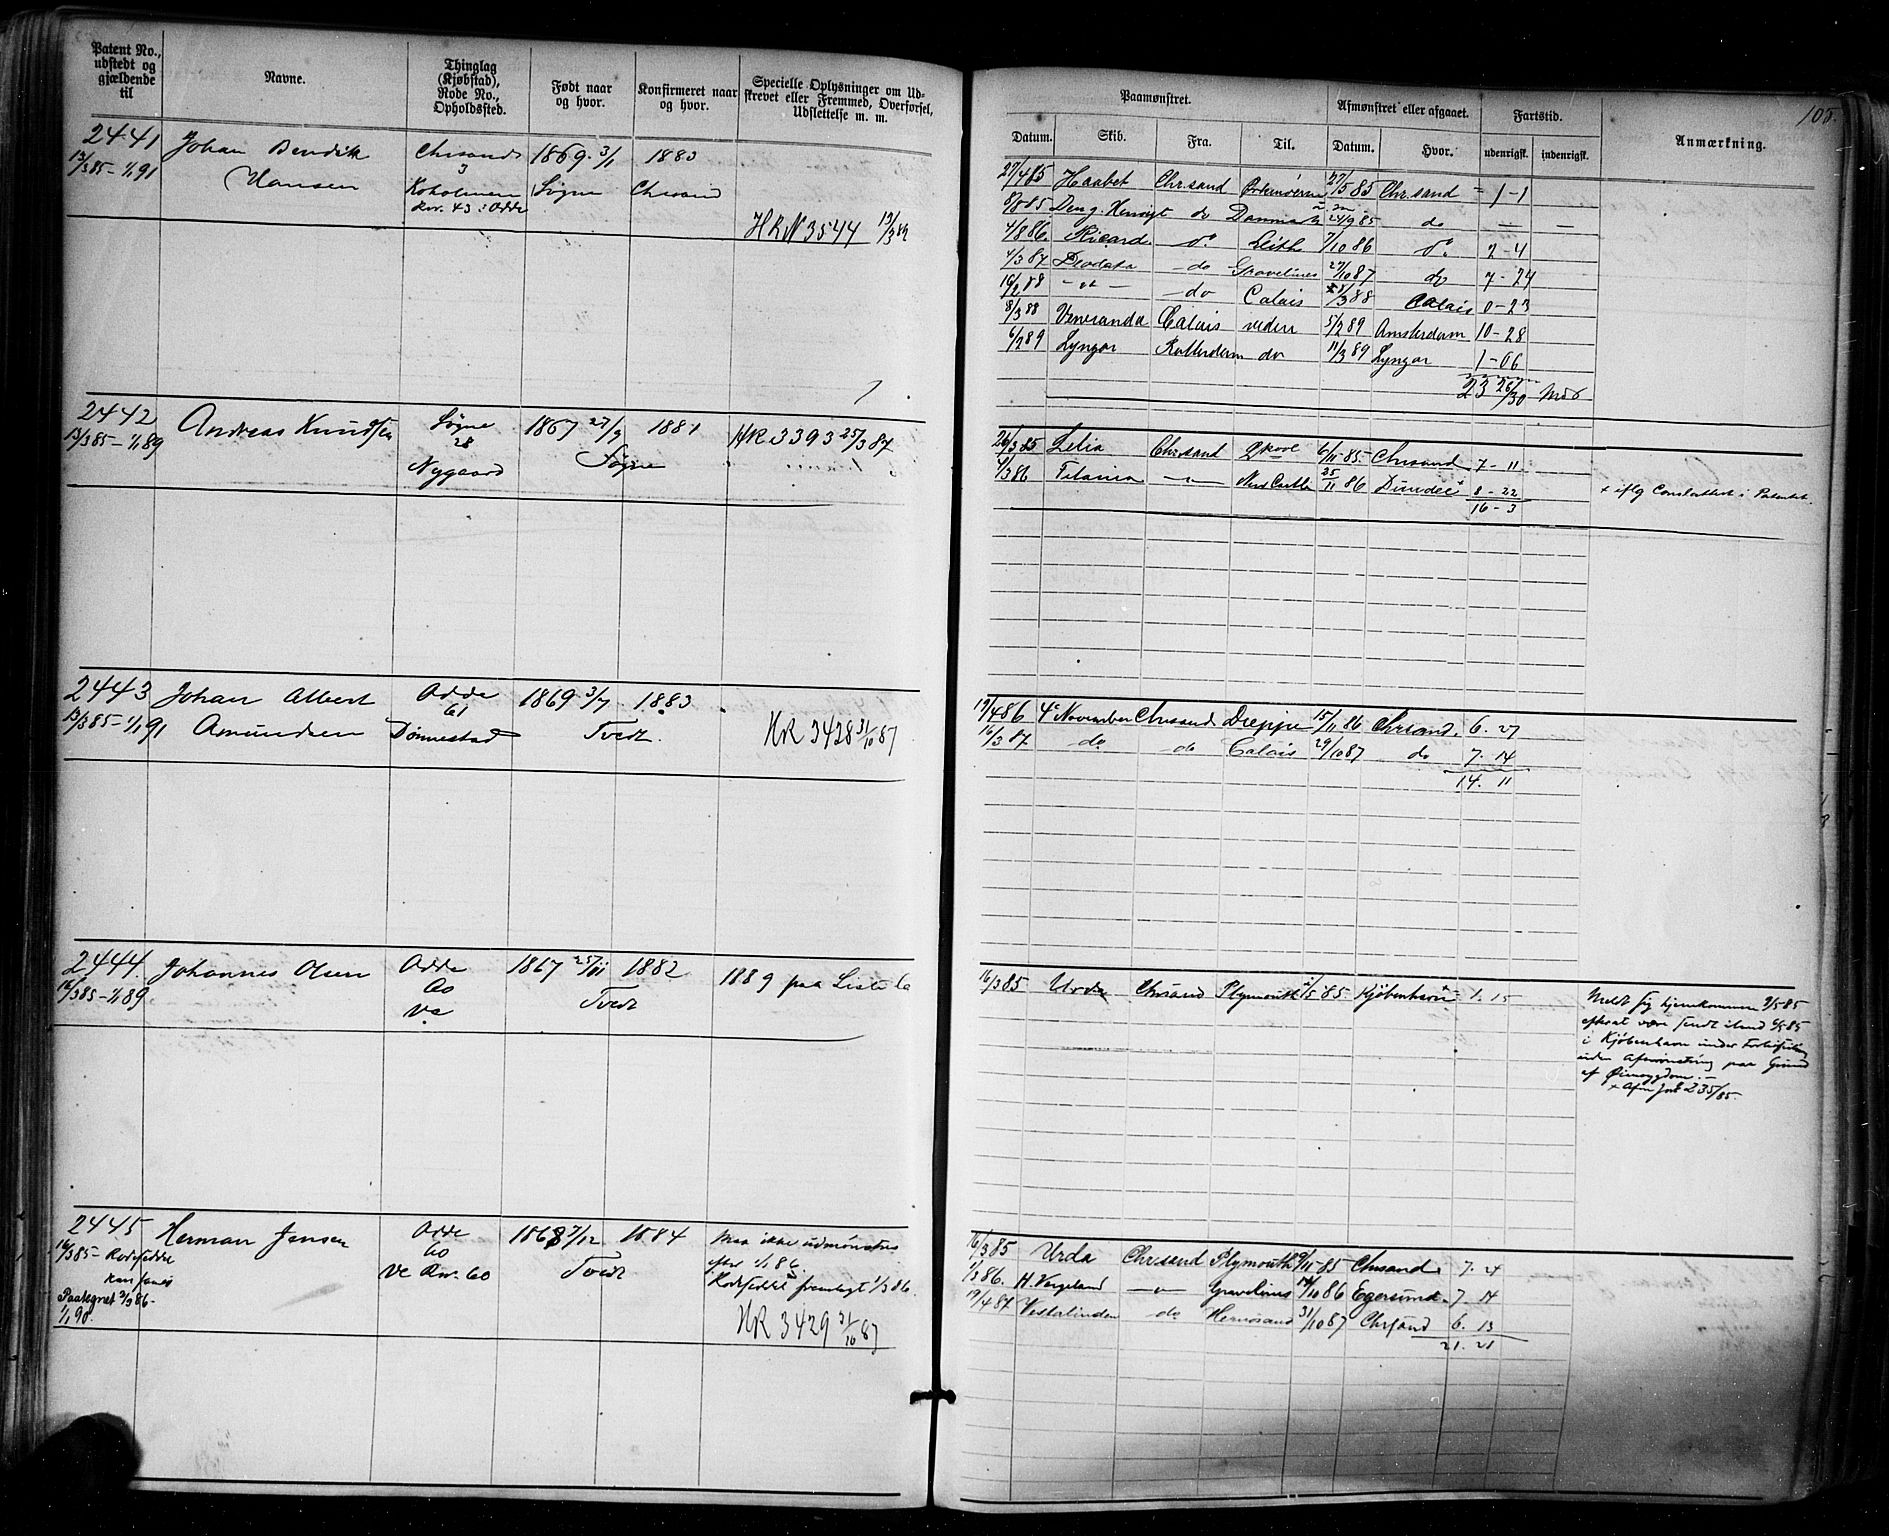 Patent No.,
udstedt og
gjældende
til
Navne.
Thinglag
(Kjøbstad),
Rode No.,
Opholdssted.
Født naar
og hvor.
Konfirmeret naar
og hvor.
Specielle Oplysninger om Ud-
skrevet eller Fremmed, Overførsel,
Udslettelse m. m.
2441
13/3 85 – 1/1 91
Johan Bendik
Hansen
Chrsand
3
Koholmen
Rnr. 43 : Odde
1869 3/1
Søgne
1883
Chrsand
HR N 3544
2442
13/3 85 – 1/1 89
Andreas Knudsen
Søgne
28
Nygaard
1867 27/9
Søgne
1881
HR 3393 25/3 87
2443
13/3 85 – 1/1 91
Johan Albert
Amundsen
Odde
61
Dønnestad
1869 3/7
Tvedt
1883
HR 3428 31/10 87
2444.
16/3 85 – 1/1 89
Johannes Olsen
Odde
60
Ve
1867 25/11
Tvedt
1882
1889 paa Liste
2445
16/3 85 –
Paategnet 2/3 86 –
1/1 90.
Herman Jensen
Odde
60
Ve Rnr. 60
1868 7/12
Tvedt
1884
Maa ikke udmønstres
efter 1/1 86.
Rodeseddel fremlagt 1/3 86.
HR 3429 31/10 87
105.
Paamønstret.
Afmønstret eller afgaaet.
Fartstid.
Anmærkning.
Datum.
Skib.
Fra.
Til.
Datum.
Hvor.
udenrigsk.
indenrigsk.
27/4 85 Haabet Chr.sand 27/5 85 Chr.sand 1 – 1
8/8 85 Den g. Hensigt do Danmark 24/9 85 do — —
4/8 86. Ricard do Leith 7/10 86 do 2 – 4
4/3 87 Deodata do Gravelines 27/10 87 do 7 – 24
16/2 88 – " – do Calais 8/3 88 Calais 0 – 23
8/3 88 Veneranda Calais videre 5/2 89 Amsterdam 10 – 28
6/2 89 Lyngør Rotterdam do 11/3 89 Lyngør 1 – 06
23 26/30 Mdr
26/3 85 Zelia Chr.sand 6/11 85. Chrsand 7 – 11
4/3 86 Titania — " — New Castle 25/11 86 Dundee + 8 – 22
16 – 3
+ iflg Consulattest i Patentet.
19/4 86 4de November Chrsand Dieppe 15/11 86 Chrsand. 6. 27
16/3 87 do do Calais 29/10 87 do 7. 14
14. 11
16/3 85 Urda Chrsand Plymouth 1/5 85 Kjøbenhavn + 1. 15
Meldt sig hjemkommen 9/5 85
efterat være sendt iland 1/5 85
i Kjøbenhavn under Forhifling
uden Afmønstring paa Grund
af Øiensygdom. –
+ Afm Jnl 235/85.
16/3 85 Urda Chrsand Plymouth 9/11 85 Chrsand. 7. 24
1/3 86. H. Vergeland — " — Gravelines 14/10 86 Egersund. 7. 14
19/4 87 Vesterlinden do Hernøsand 31/10 87 Chrsand 6. 13
21. 21